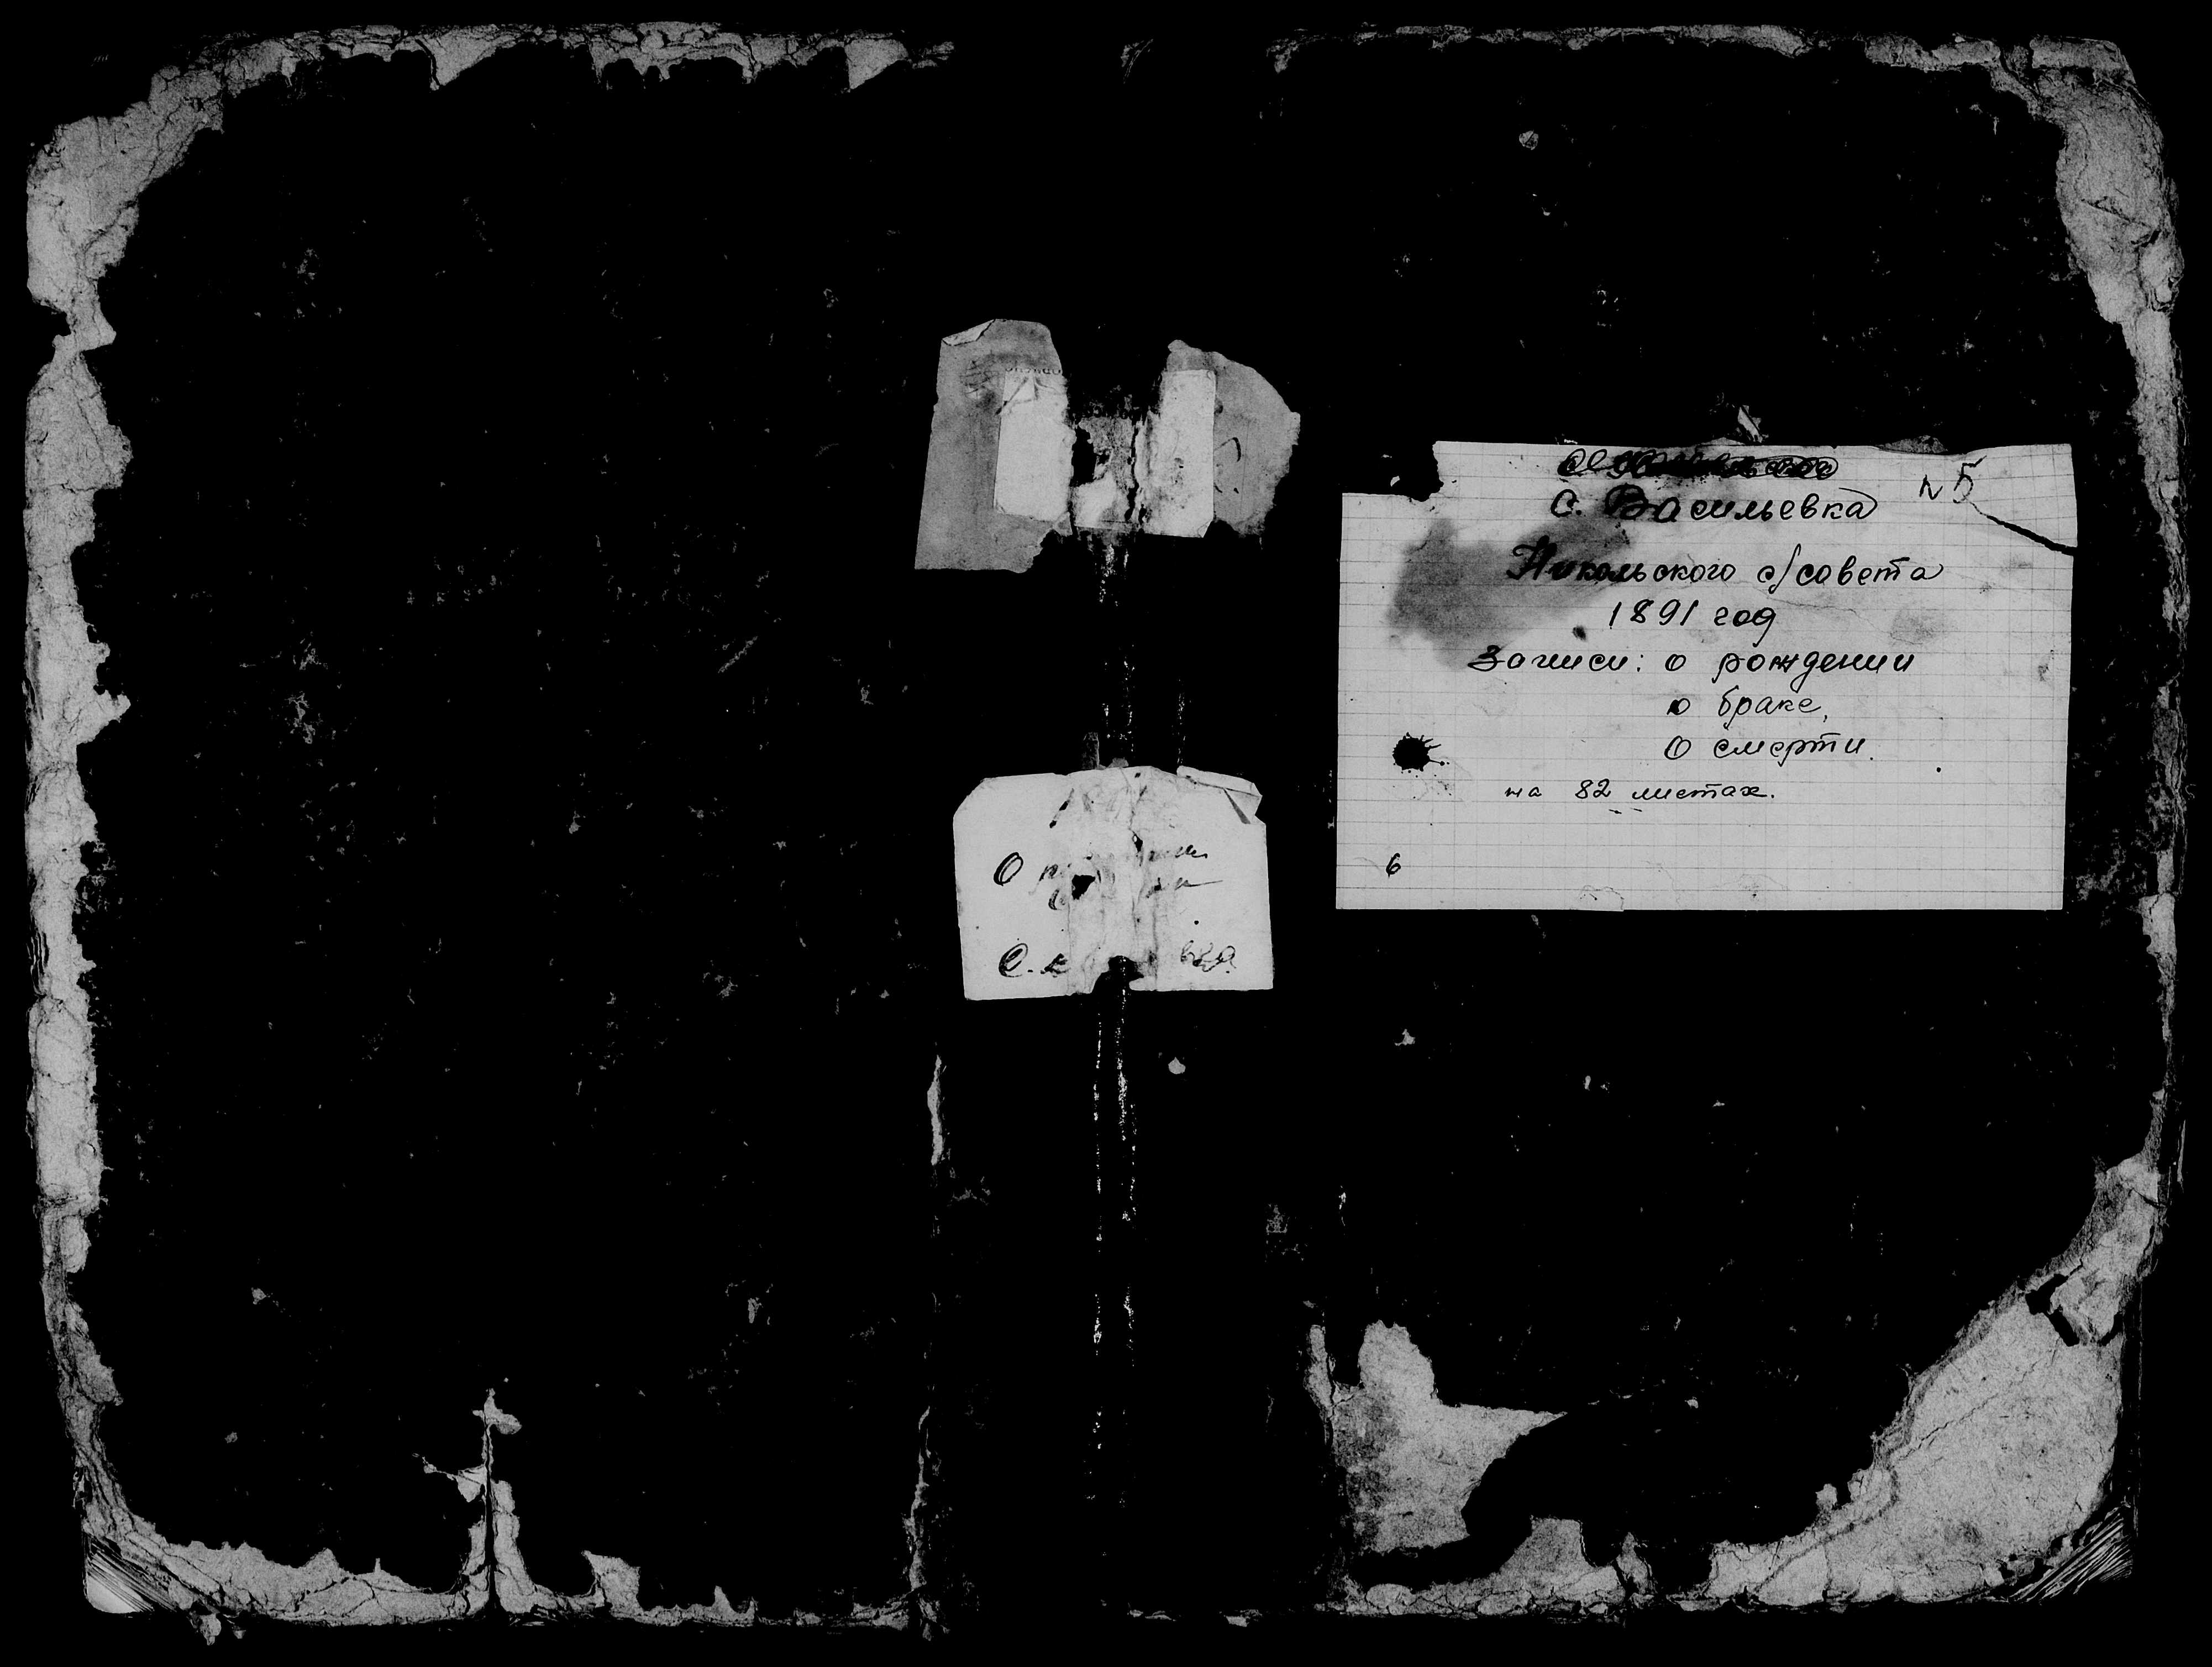 N 5
с. Васильевка
Никольского с/совета
1891 год
Записи: о рождении
о браке,
о смерти.
на 82 листах.
6
О
С.